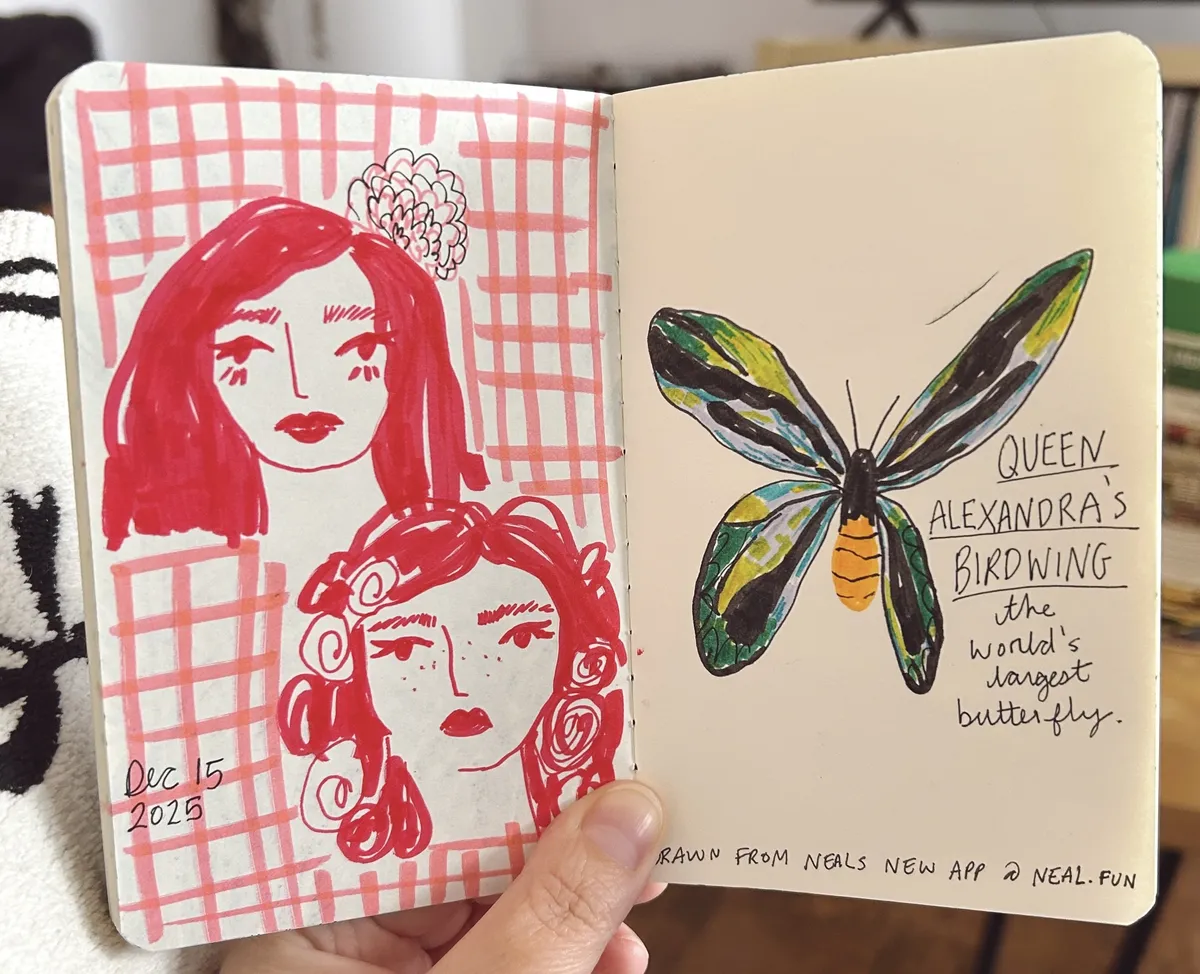 Dec 15
2025
QUEEN
ALEXANDRA'S
BIRDWING
the
world's
largest
butterfly.
DRAWN FROM NEALS NEW APP @ NEAL.FUN